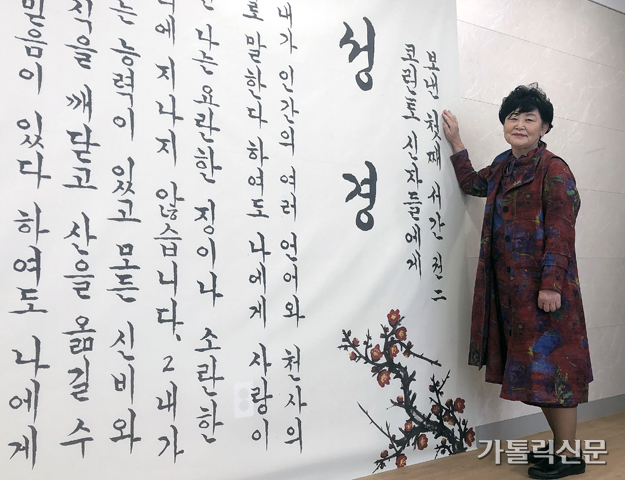 성경
코린토 신자들에게
보낸 첫째 서간
내가 인간의 여러 언어와 천사의
로 말한다 하여도 나에게 사랑이
나는 요란한 징이나 소란한
에 지나지 않습니다. 2내가
는 능력이 있고 모든 신비와
식을 깨닫고 산을 옮길 수
믿음이 있다 하여도 나에게
가톨릭신문